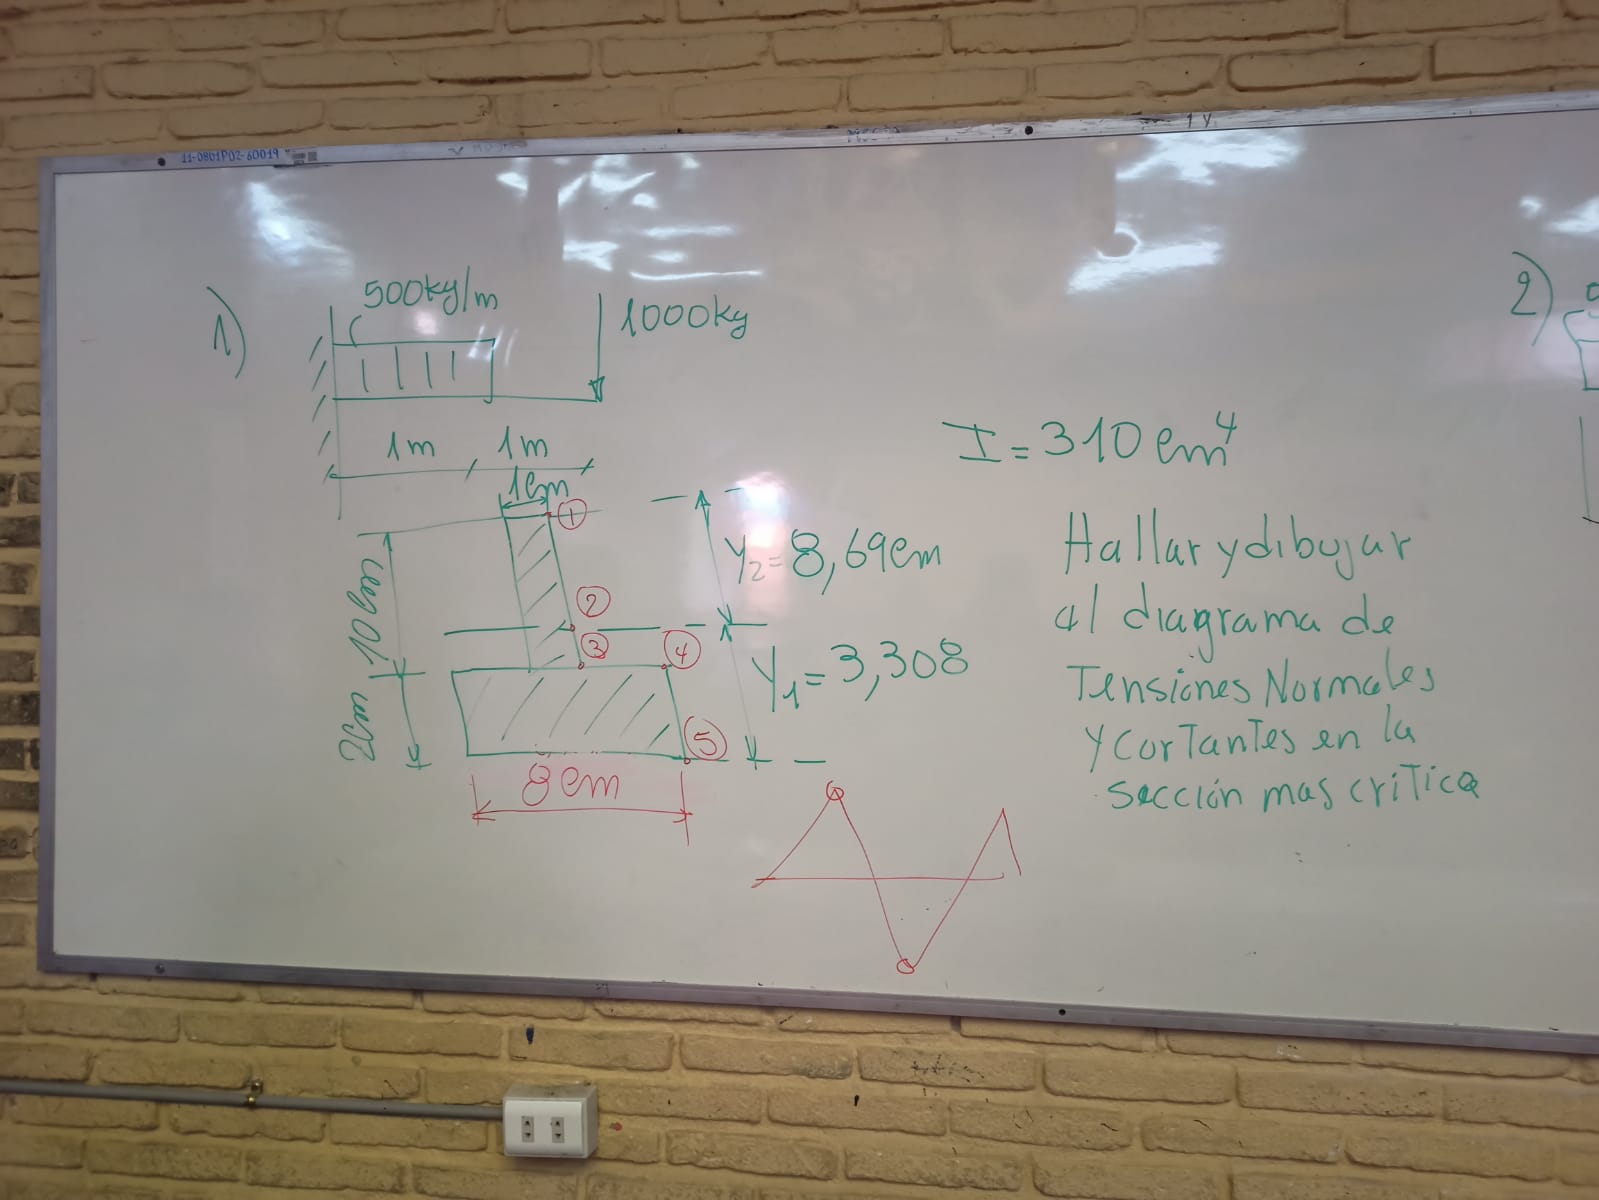 11-0801P02-60019
1)
500kg/m
1000kg
1m
1m
1cm
1
10cm
2
3
4
2cm
5
8cm
Y2=8,69cm
Y1=3,308
I=310cm⁴
Hallar y dibujar
al diagrama de
Tensiones Normales
y cortantes en la
sección mas critica
2)